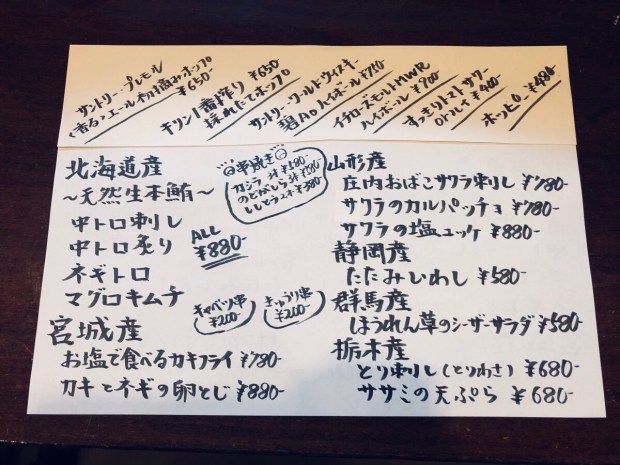 サントリー・プレモル
〈香る〉エール 初摘みホップ
¥650-
キリン1番搾り ¥650
採れたてホップ
サントリー・ワールドウィスキー
碧Ao ハイボール ¥750
イチローズモルトMWR
ハイボール ¥900
すっきりトマトサワー
orハイ ¥480
ホッピー ¥480
北海道産
~天然生本鮪~
中トロ刺し
中トロ炙り
ネギトロ
マグロキムチ
ALL
¥880-
串焼き
カシラ 3本 ¥580-
のどがしら 3本 ¥580
ししとう 2本 ¥380
キャベツ串
¥200-
きゅうり串
¥200-
宮城産
お塩で食べるカキフライ ¥780-
カキとネギの卵とじ ¥880-
山形産
庄内おばこサクラ刺し ¥780-
サクラのカルパッチョ ¥780-
サクラの塩ユッケ ¥880-
静岡産
たたみいわし ¥580-
群馬産
ほうれん草のシーザーサラダ ¥580
栃木産
とり刺し(とりわさ) ¥680-
ササミの天ぷら ¥680-